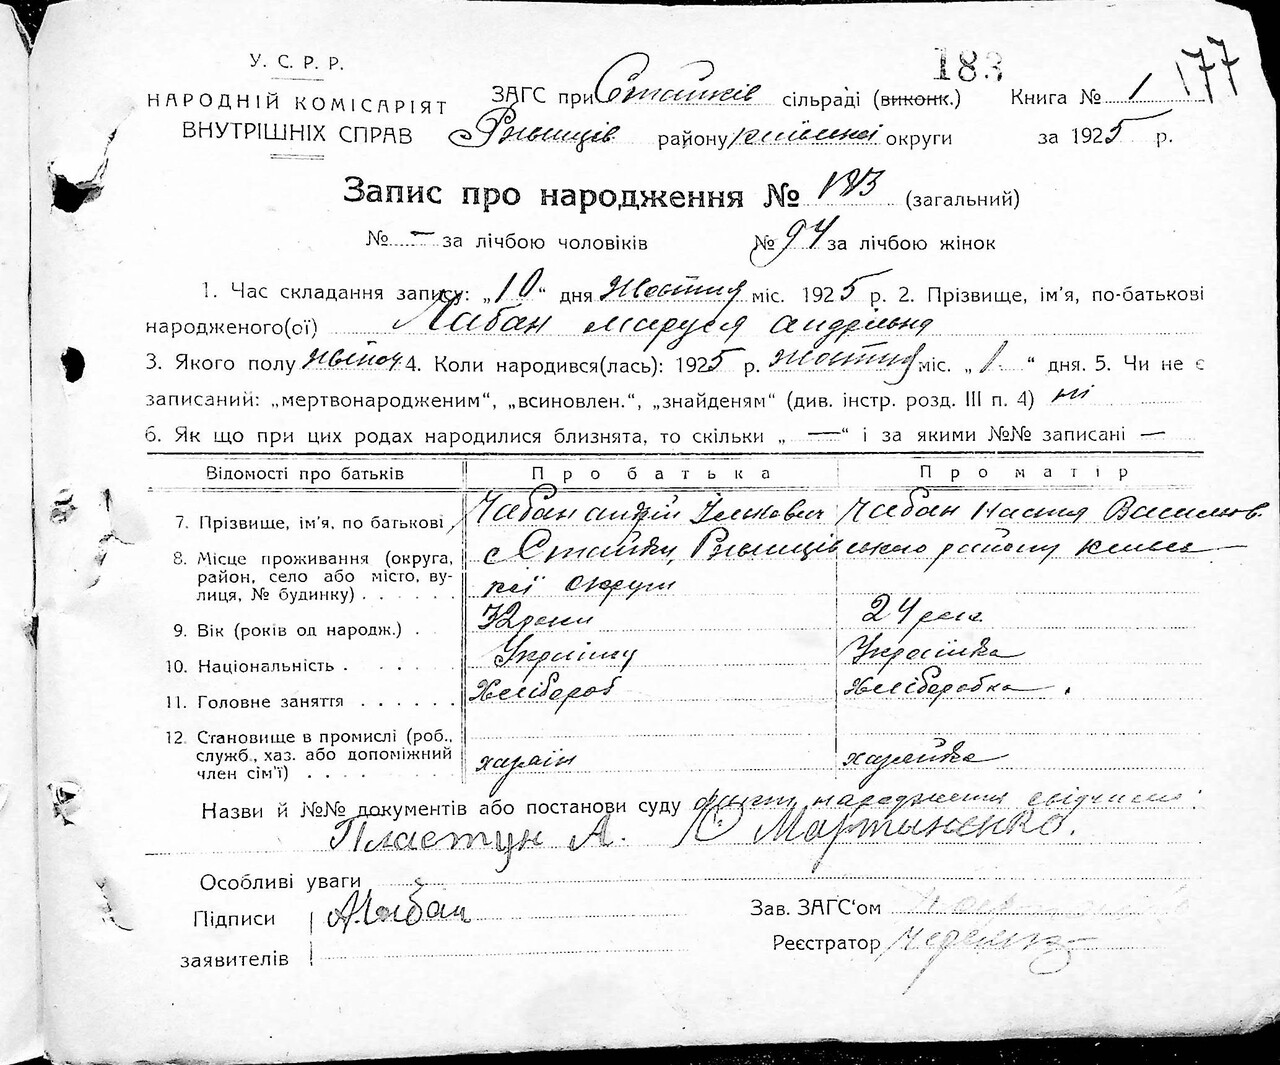 У. С. Р. Р.
НАРОДНІЙ КОМІСАРІЯТ
ВНУТРІШНІХ СПРАВ
183
177
ЗАГС при Стайків сільраді (виконк.) Книга № 1
Ржищів району київської округи за 1925 р.
Запис про народження № 183 (загальний)
№ — за лічбою чоловіків № 94 за лічбою жінок
1. Час складання запису: „10“ дня Жовтня міс. 1925 р. 2. Прізвище, ім'я, по-батькові
народженого(ої) Чабан Маруся Андріївна
3. Якого полу жіноч 4. Коли народився(лась): 1925 р. Жовтня міс. „1“ дня. 5. Чи не є
записаний: „мертвонародженим“, „всиновлен.“, „знайденям“ (див. інстр. розд. III п. 4) ні
6. Як що при цих родах народилися близнята, то скільки „ — “ і за якими №№ записані —
Відомості про батьків Про батька Про матір
7. Прізвище, ім'я, по батькові Чабан Андрій Улькович Чабан Настя Василів
8. Місце проживання (округа, район, село або місто, вулиця, № будинку) с Стайки, Ржищівського району київської округи
9. Вік (років од народж.) 32 роки 24 роки
10. Національність Українець Українка
11. Головне заняття Хлібороб хліборобка
12. Становище в промислі (роб., служб., хаз. або допоміжний член сім'ї) хазяїн хазяйка
Назви й №№ документів або постанови суду факт народження свідчили:
Пластун А. Мартиненко.
Особливі уваги
Підписи заявителів А. Чабан
Зав. ЗАГС'ом
Реєстратор